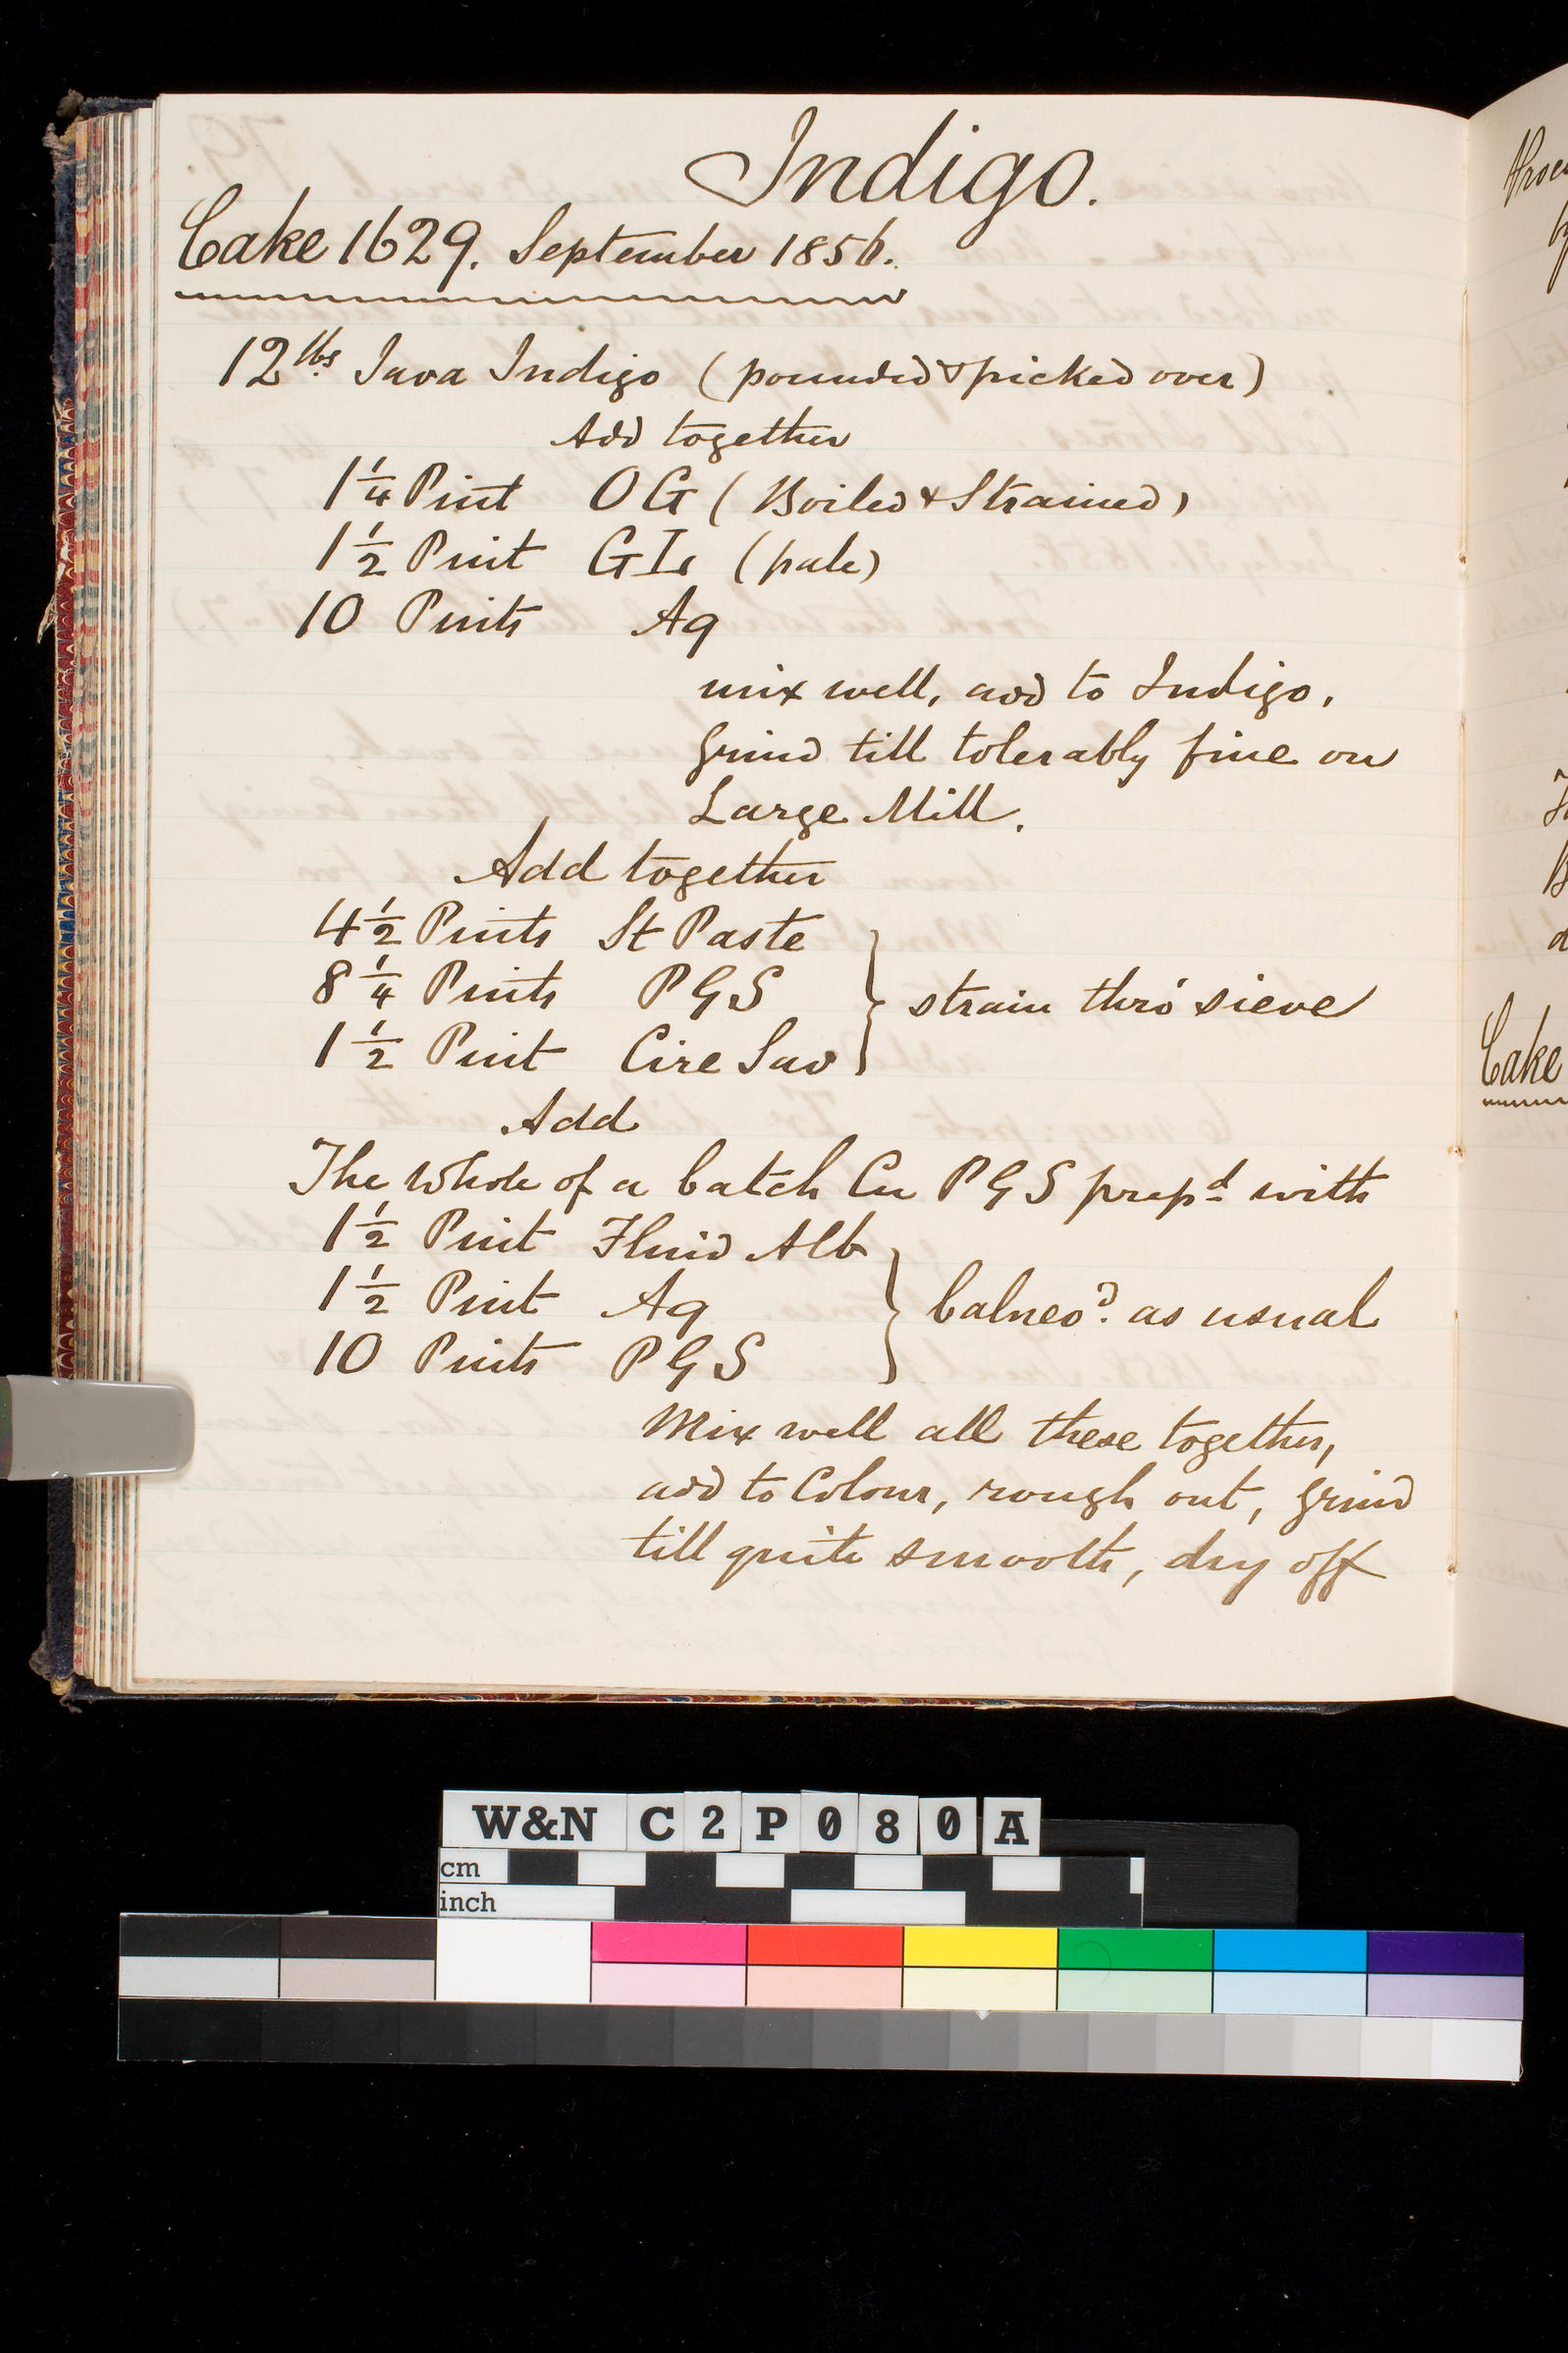 Indigo.
Cake 1629. September 1856.
12 lbs Java Indigo (pounded & picked over)
Add together
1 1/4 Pint OG (Boiled & Strained)
1 1/2 Pint GIr (pale)
10 Pints Aq
mix well, add to Indigo,
grind till tolerably fine on
Large Mill.
Add together
4 1/2 Pints St Paste
8 1/4 Pints PGS
1 1/2 Pint Cire Sav
} strain thro' sieve
Add
The whole of a batch Cu PGS prepd with
1 1/2 Pint Fluid Alb
1 1/2 Pint Aq
10 Pints PGS
} balneod. as usual
Mix well all these together,
add to Colour, rough out, grind
till quite smooth, dry off
Cake
W&N C2P080A
cm
inch